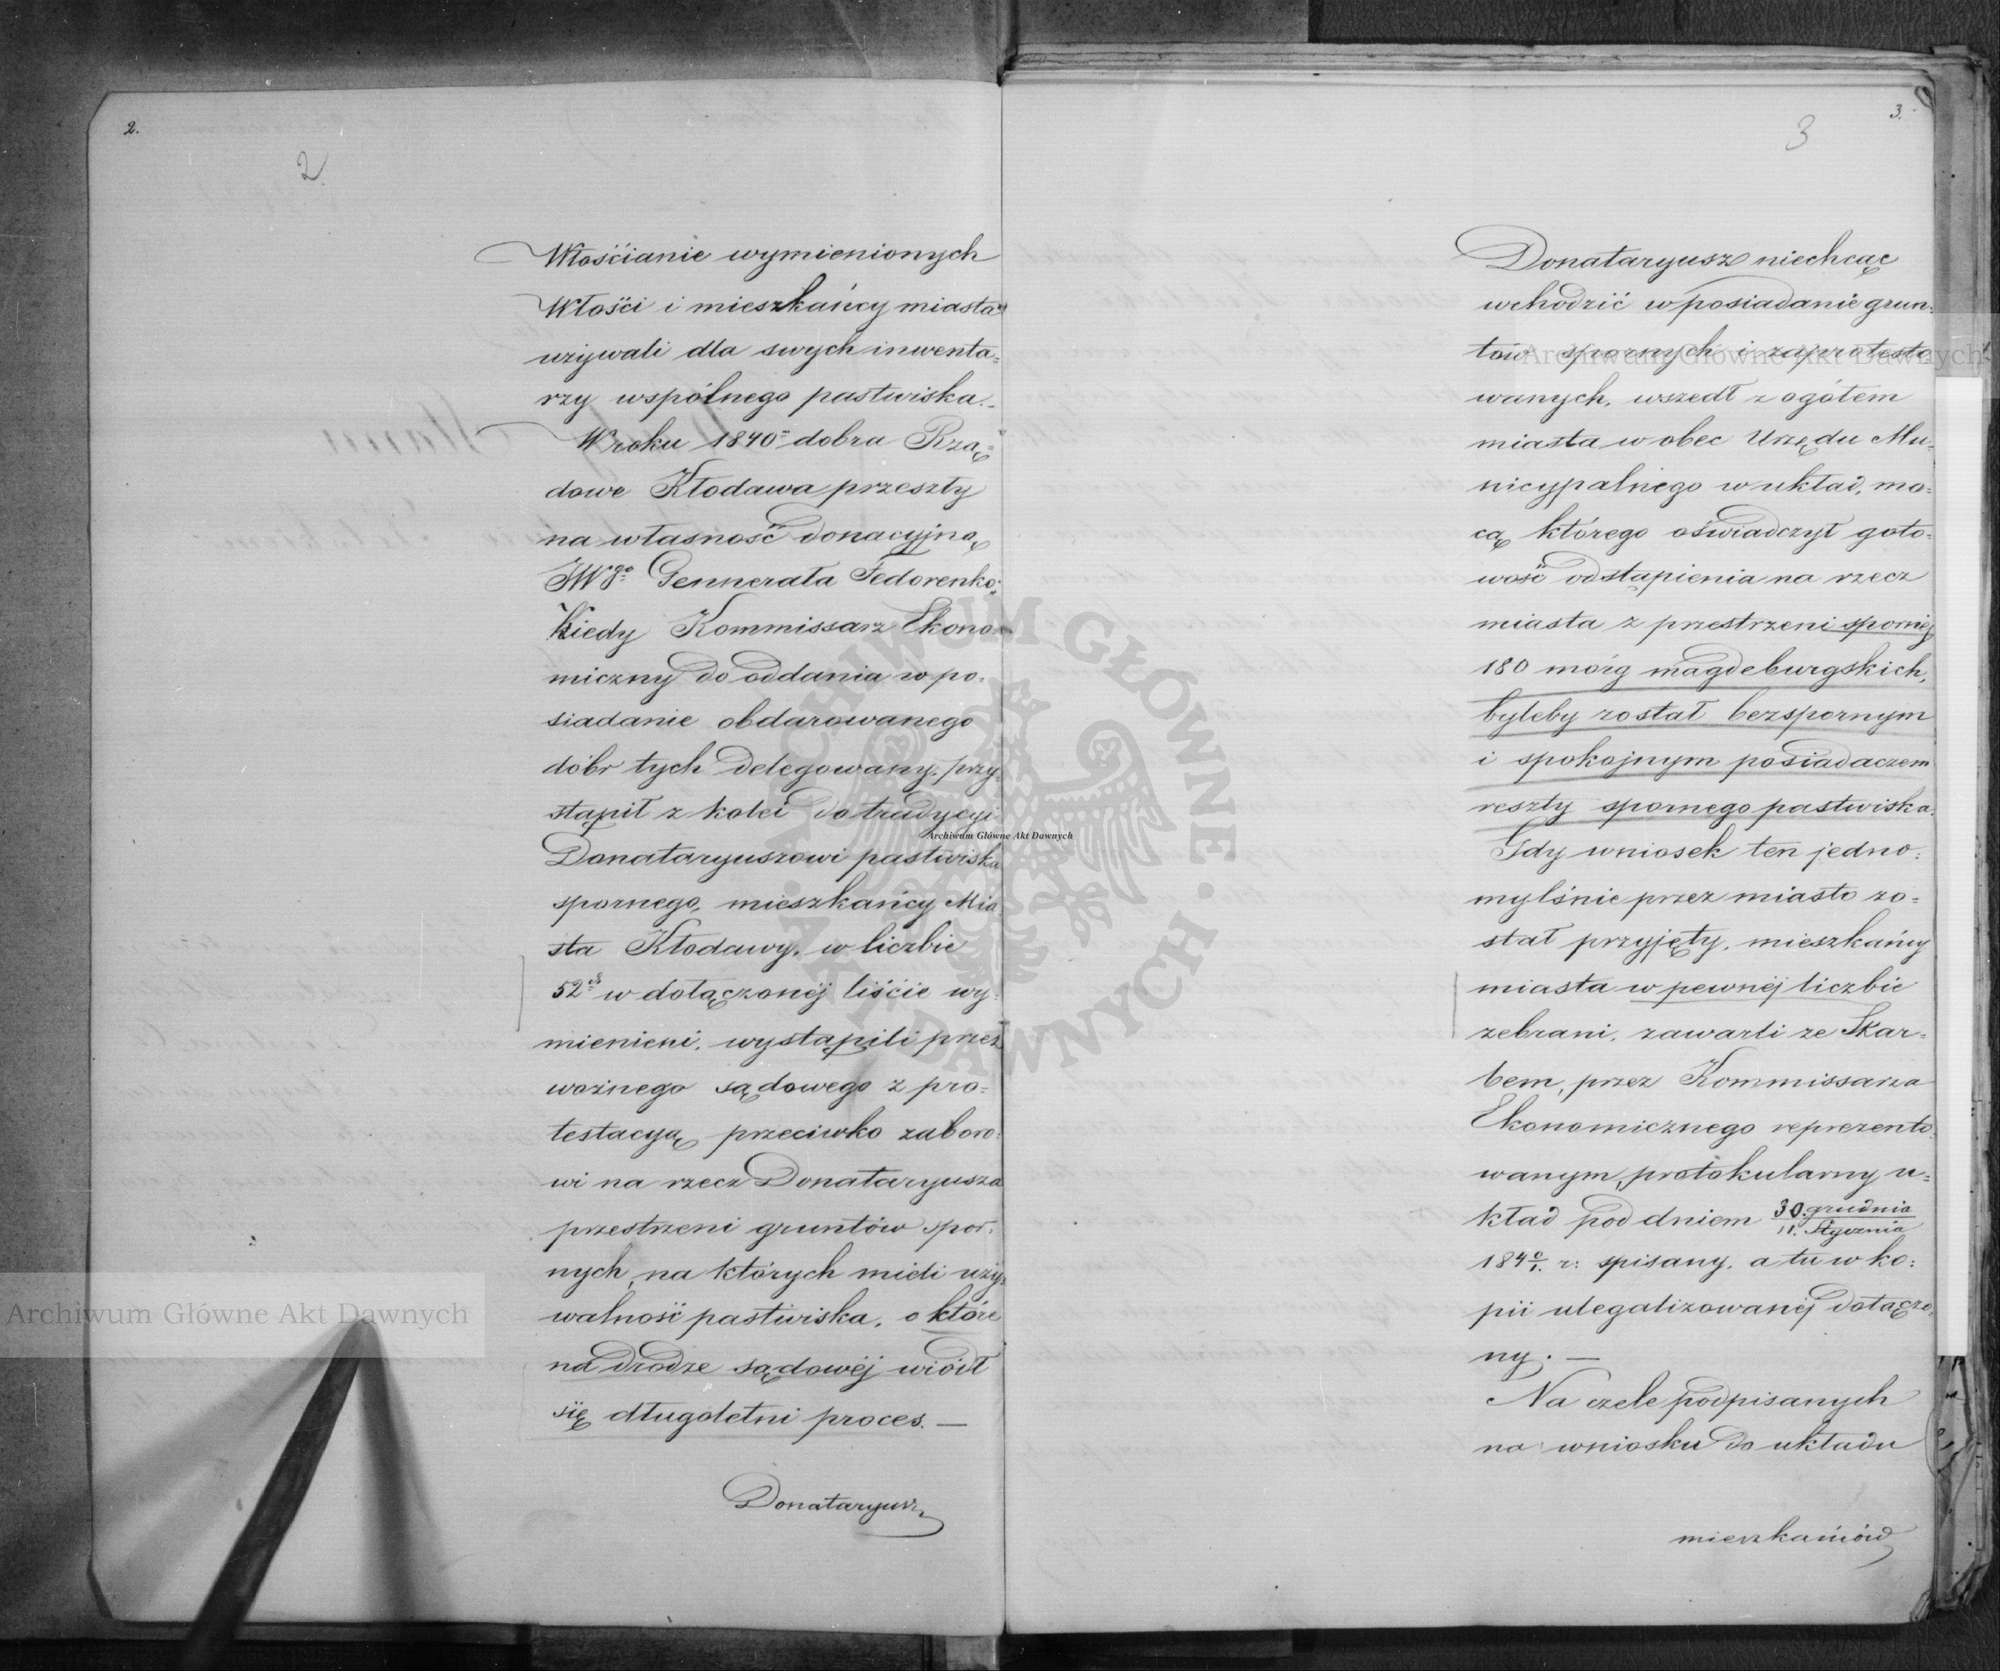 2.
2
Włościanie wymienionych
Włości i mieszkańcy miasta
używali dla swych inwenta=
rzy wspólnego pastwiska.
W roku 1840= dobra Rzą=
dowe Kłodawa przeszły
na własność donacyjną
JWgo Gennerała Fedorenko;
Kiedy Kommissarz Ekono=
miczny do oddania w po.
siadanie obdarowanego
dóbr tych delegowany, przy.
stąpił z kolei do tradycyi
Donataryuszowi pastwiska
spornego, mieszkańcy Mia
sta Kłodawy, w liczbie
52ch w dołączonéj liście wy.
mienieni, wystąpili przez
woźnego sądowego z pro=
testacyą przeciwko zaboro=
wi na rzecz Donataryusza
przestrzeni gruntów spor.
nych, na których mieli uży=
walność pastwiska, o które
na drodze sądowéj wiódł
się długoletni proces. —
Donataryusz
3.
3
Donataryusz niechcąc
wchodzić w posiadanie grun=
tów spornych i zaprotesto
wanych, wszedł z ogółem
miasta w obec Urzędu Mu=
nicypalnego w układ, mo=
cą którego oświadczył goto=
wość odstąpienia na rzecz
miasta z przestrzeni spornéj
180 mórg magdeburgskich,
byleby został bezspornym
i spokojnym posiadaczem
reszty spornego pastwiska.
Gdy wniosek ten jedno=
myślnie przez miasto zo=
stał przyjęty, mieszkańcy
miasta w pewnéj liczbie
zebrani, zawarli ze Skar=
bem, przez Kommissarza
Ekonomicznego reprezento=
wanym, protokularny u=
kład pod dniem 30. grudnia
11. Stycznia
184 0/1. r: spisany, a tu w ko=
pii ulegalizowanéj dołączo=
ny. —
Na czele podpisanych
na wniosku do układu
mieszkańców
Archiwum Główne Akt Dawnych
Archiwum Główne Akt Dawnych
Archiwum Główne Akt Dawnych
ARCHIWUM GŁÓWNE · AKT DAWNYCH ·